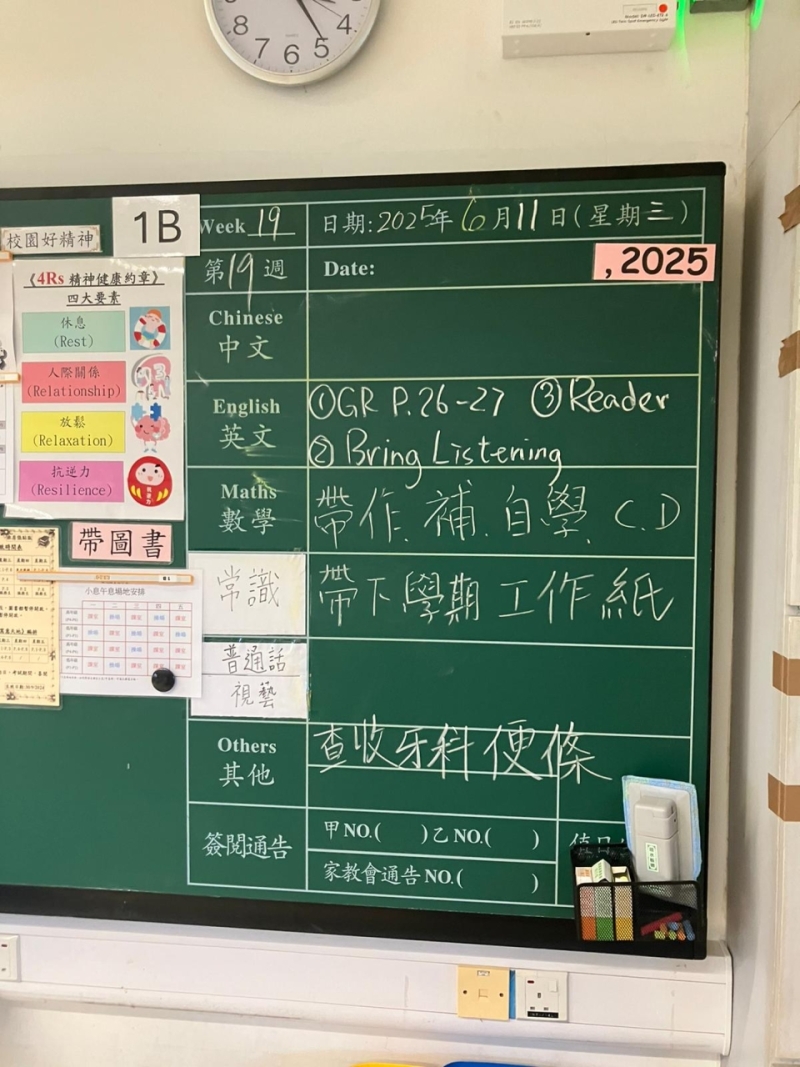 8 7 6 5 4
校園好精神
1B
《4Rs 精神健康約章》
四大要素
休息
(Rest)
人際關係
(Relationship)
放鬆
(Relaxation)
抗逆力
(Resilience)
帶圖書
小息午息場地安排
一 二 三 四 五
Week 19
日期:2025年6月11日(星期三)
第19週
Date:
, 2025
Chinese
中文
English
英文
①GR P.26-27 ③Reader
② Bring Listening
Maths
數學
帶作.補.自學.C.D
常識
帶下學期工作紙
普通話
視藝
Others
其他
查收牙科便條
簽閱通告
甲NO.( )乙NO.( )
家教會通告NO.( )
值日